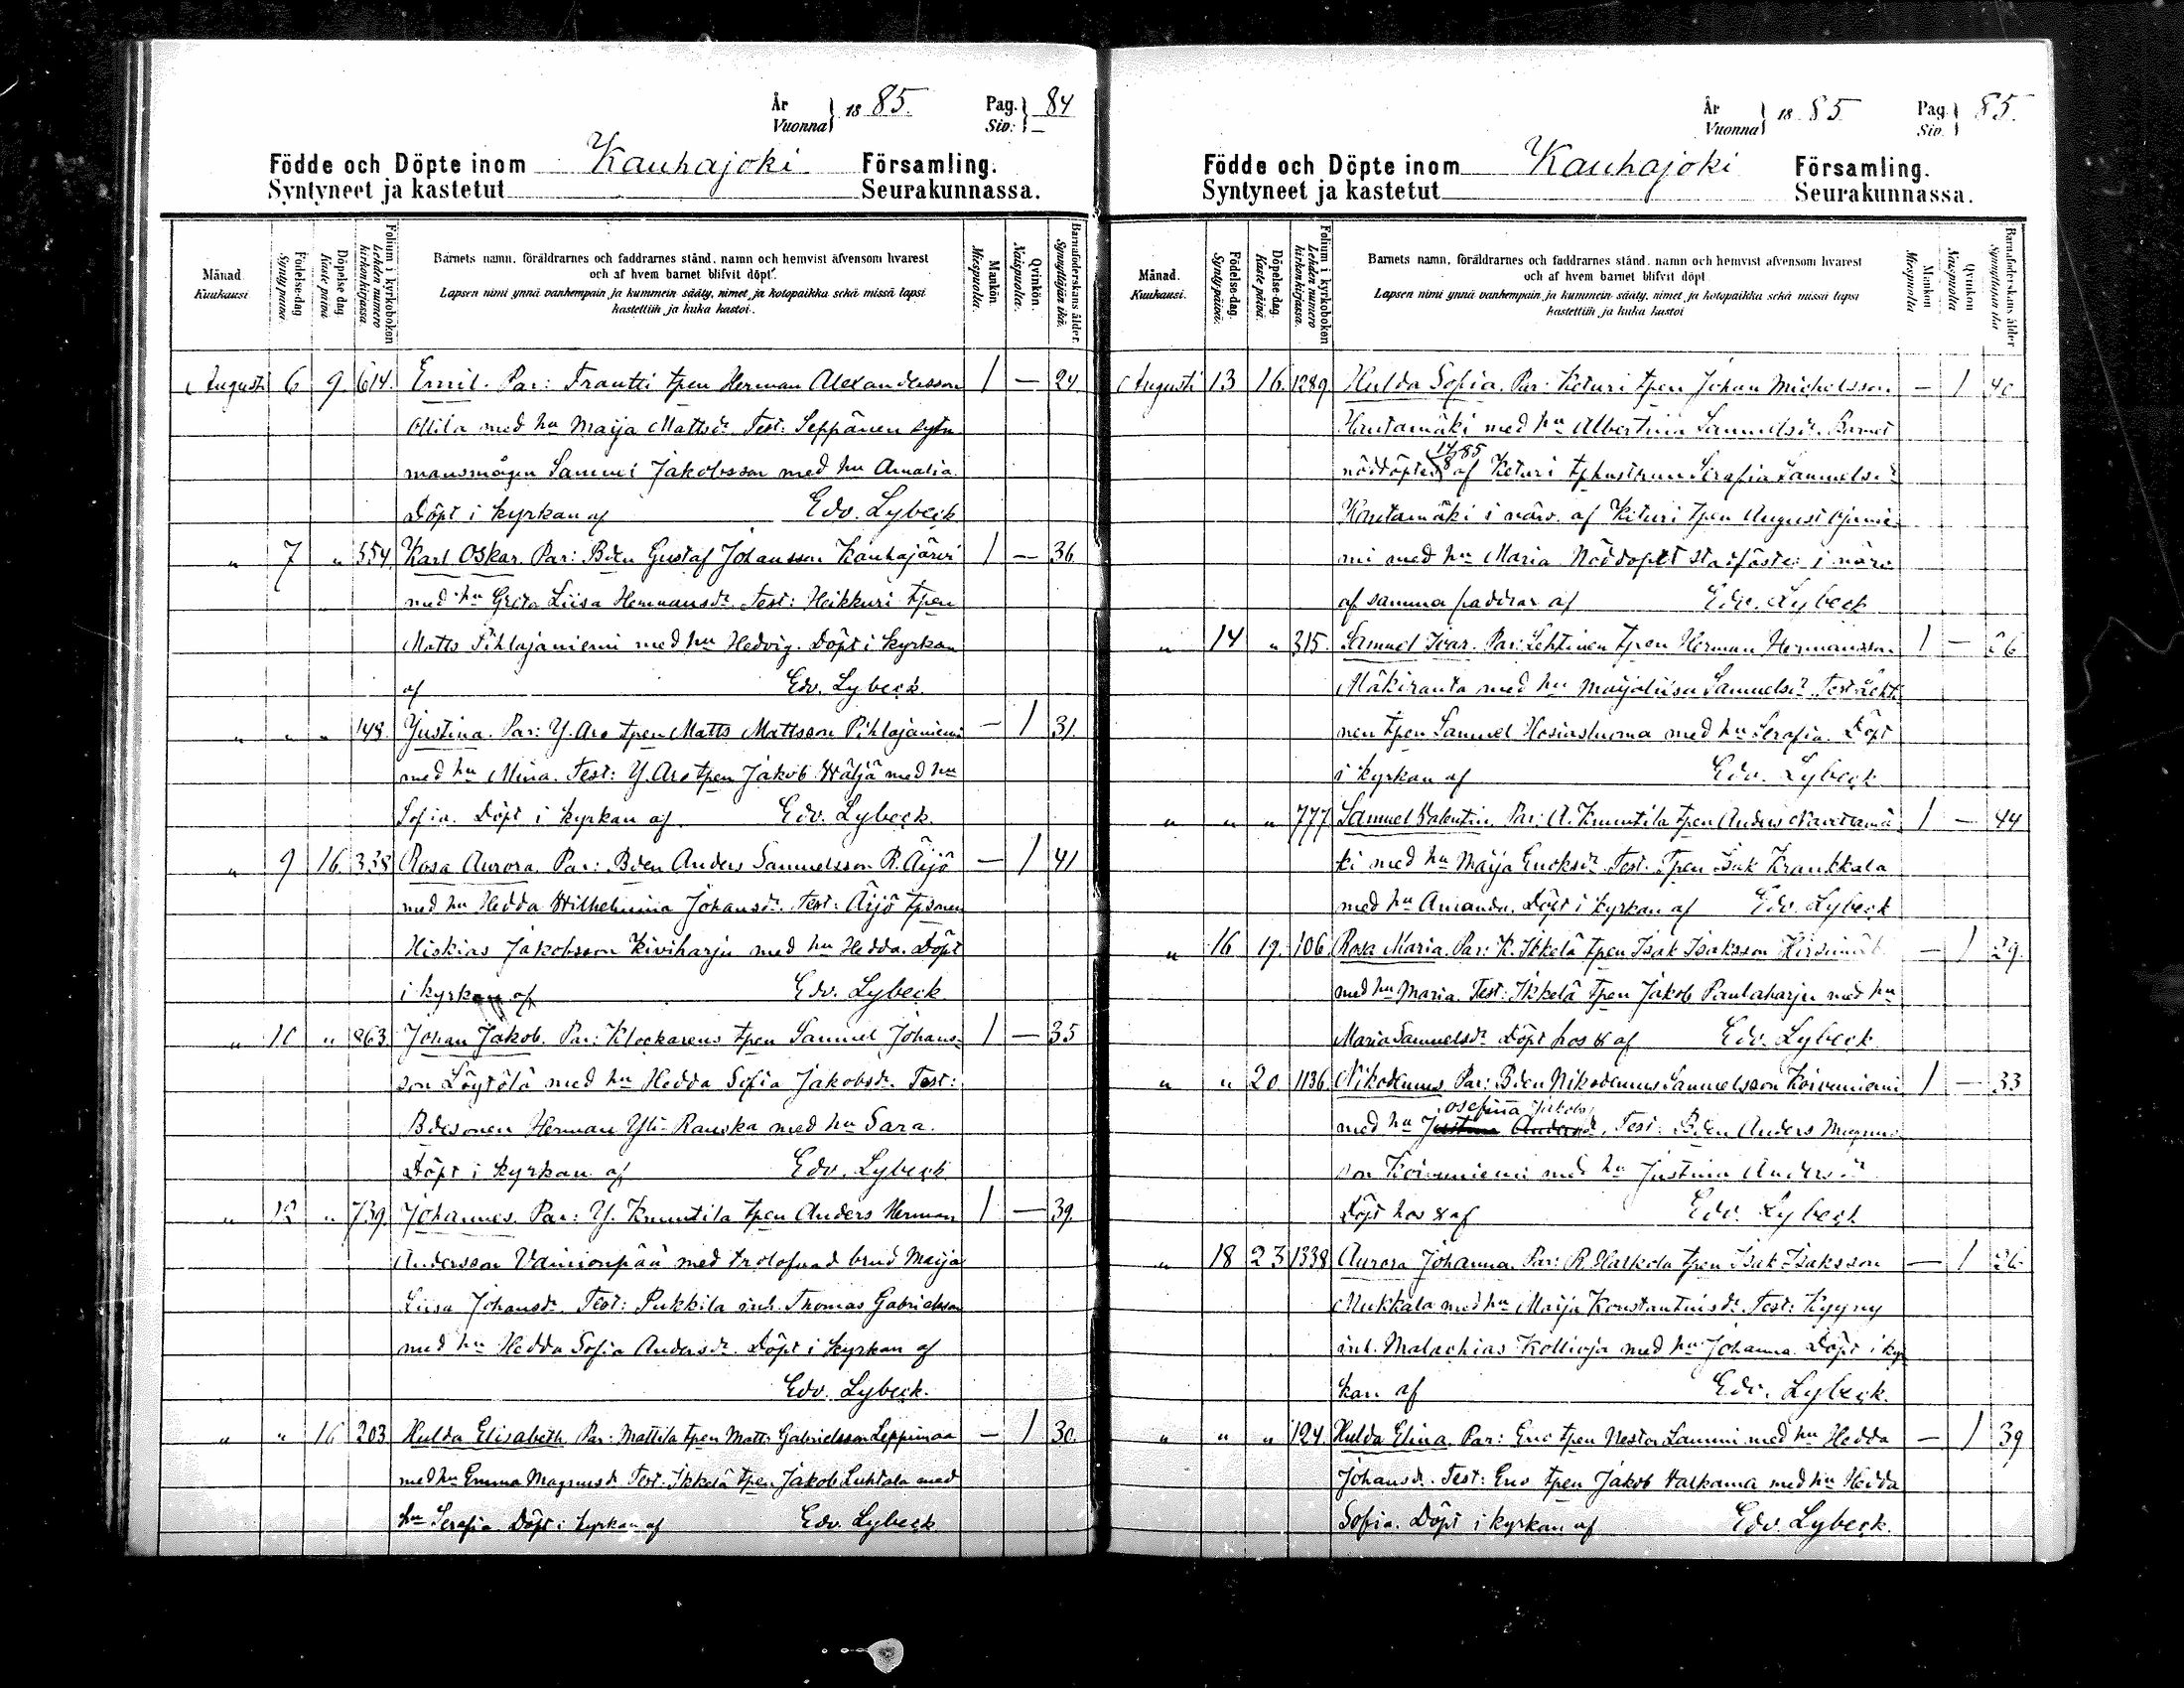 År
Vuonna } 1885.
Pag.
Siv: } 84
Födde och Döpte inom Kauhajoki Församling.
Syntyneet ja kastetut Seurakunnassa.
Månad. Kuukausi
Födelse-dag Syntypäivä.
Döpelse-dag Kaste päivä
Folium i kyrkoboken Lehden numero kirkonkirjassa
Barnets namn, föräldrarnes och faddrarnes stånd, namn och hemvist äfvensom hvarest
och af hvem barnet blifvit döpt.
Lapsen nimi ynnä vanhempain ja kummein sääty, nimet ja kotopaikka sekä missä lapsi
kastettiin ja kuka kastoi.
Mankön. Miespuolta.
Qvinkön. Naispuolta.
Barnaföderskans ålder. Synnyttäjän ikä.
Augusti 6 9. 614. Emil. Par: Frantti tpen Herman Alexandersson 1 — 24.
Ollila med hu Maija Mattsdr. Test: Seppänen
mansmågen Sammeli Jakobsson med hu Amalia.
Döpt i kyrkan af Edv. Lybeck
" 7 " 554. Karl Oskar. Par: Bden Gustaf Johansson Kauhajärvi 1 — 36.
med hu Greta Liisa Hermansdr. Test: Heikkuri tpen
Matts Pihlajaniemi med hu Hedvig. Döpt i kyrkan
af Edv. Lybeck.
" " " 148. Justina. Par: Y. Aro tpen Matts Mattsson Pihlajaniemi — 1 31.
med hu Mina. Test: Y. Aro tpen Jakob Wäljä med hu
Sofia. Döpt i kyrkan af Edv. Lybeck.
" 9 16. 338 Rosa Aurora. Par: Bden Anders Samuelsson R. Äijö — 1 41
med hu Hedda Wilhelmina Johansdr. Test: Äijö tpsonen
Hiskias Jakobsson Kiviharju med hu Hedda. Döpt
i kyrkan af Edv. Lybeck
" 10 " 863 Johan Jakob. Par: Klockarens tpen Samuel Johans- 1 — 35
son Löytölä med hu Hedda Sofia Jakobsdr. Test:
Bdesonen Herman Yli-Rauska med hu Sara.
Döpt i kyrkan af Edv. Lybeck
" 12 " 739. Johannes. Par: Y. Knuutila tpen Anders Herman 1 — 39.
Andersson Vainionpää med trolofvad brud Maija
Liisa Johansdr. Test: Pukkila inh. Thomas Gabrielsson
med hu Hedda Sofia Andersdr. Döpt i kyrkan af
Edv. Lybeck.
" " 16 203 Hulda Elisabeth. Par: Mattila tpen Matts Gabrielsson Leppimaa — 1 30.
med hu Emma Magnusdr. Test: Ikkelä tpen Jakob Luhtala med
hu Serafia. Döpt i kyrkan af Edv. Lybeck
År
Vuonna } 1885
Pag.
Siv. } 85.
Födde och Döpte inom Kauhajoki Församling.
Syntyneet ja kastetut Seurakunnassa.
Månad. Kuukausi.
Födelse-dag Syntypäivä.
Döpelse-dag Kaste päivä.
Folium i kyrkoboken Lehden numero kirkonkirjassa.
Barnets namn, föräldrarnes och faddrarnes stånd, namn och hemvist äfvensom hvarest
och af hvem barnet blifvit döpt.
Lapsen nimi ynnä vanhempain ja kummein sääty, nimet ja kotopaikka sekä missä lapsi
kastettiin ja kuka kastoi
Mankön Miespuolta
Qvinkön Naispuolta
Barnaföderskans ålder Synnyttäjän ikä
Augusti 13 16. 1289. Hulda Sofia. Par: Keturi tpen Johan Michelsson — 1 40
Hautamäki med hu Albertina Samuelsdr. Barnet
nöddöptes 14/8 85 af Keturi tphustrun Serafia Samuelsdr
Hautamäki i närv. af Keturi tpen August
med hu Maria. Nöddopet stadfästes i närv.
af samma faddrar af Edv. Lybeck
" 14 " 315. Samuel Ivar. Par: Lehtinen tpen Herman Hermansson 1 — 26
Mäkiranta med hu Maijaliisa Samuelsdr. Test: Lehti-
nen tpen Samuel Hosiasluoma med hu Serafia. Döpt
i kyrkan af Edv. Lybeck
" " " 777. Samuel Valentin. Par: A. Knuutila tpen Anders Hautamä- 1 — 44
ki med hu Maija Enoksdr. Test: Tpen Isak Krankkala
med hu Amanda. Döpt i kyrkan af Edv. Lybeck
" 16 19. 106. Rosa Maria. Par: K. Ikkelä tpen Isak Isaksson — 1 29.
med hu Maria. Test: Ikkelä tpen Jakob Paulaharju med hu
Maria Samuelsdr. Döpt hos & af Edv. Lybeck
" " 20 1136. Nikodemus. Par: Bden Nikodemus Samuelsson Koivuniemi 1 — 33
med hu Josefina Jakobs. Test: Bden Anders Magnus-
son Koivuniemi med hu Justina Andersdr
Döpt hos & af Edv. Lybeck
" 18 23 1338 Aurora Johanna. Par: R. Halkola tpen Isak Isaksson — 1 26.
Mukkala med hu Maija Konstantinsdr. Test: Kyyny
inh. Malachias Kollioja med hu Johanna. Döpt i kyr-
kan af Edv. Lybeck.
" " " 124. Hulda Elina. Par: Eno tpen Nestor Lammi med hu Hedda — 1 39
Johansdr. Test: Eno tpen Jakob Valkama med hu Hedda
Sofia. Döpt i kyrkan af Edv. Lybeck.